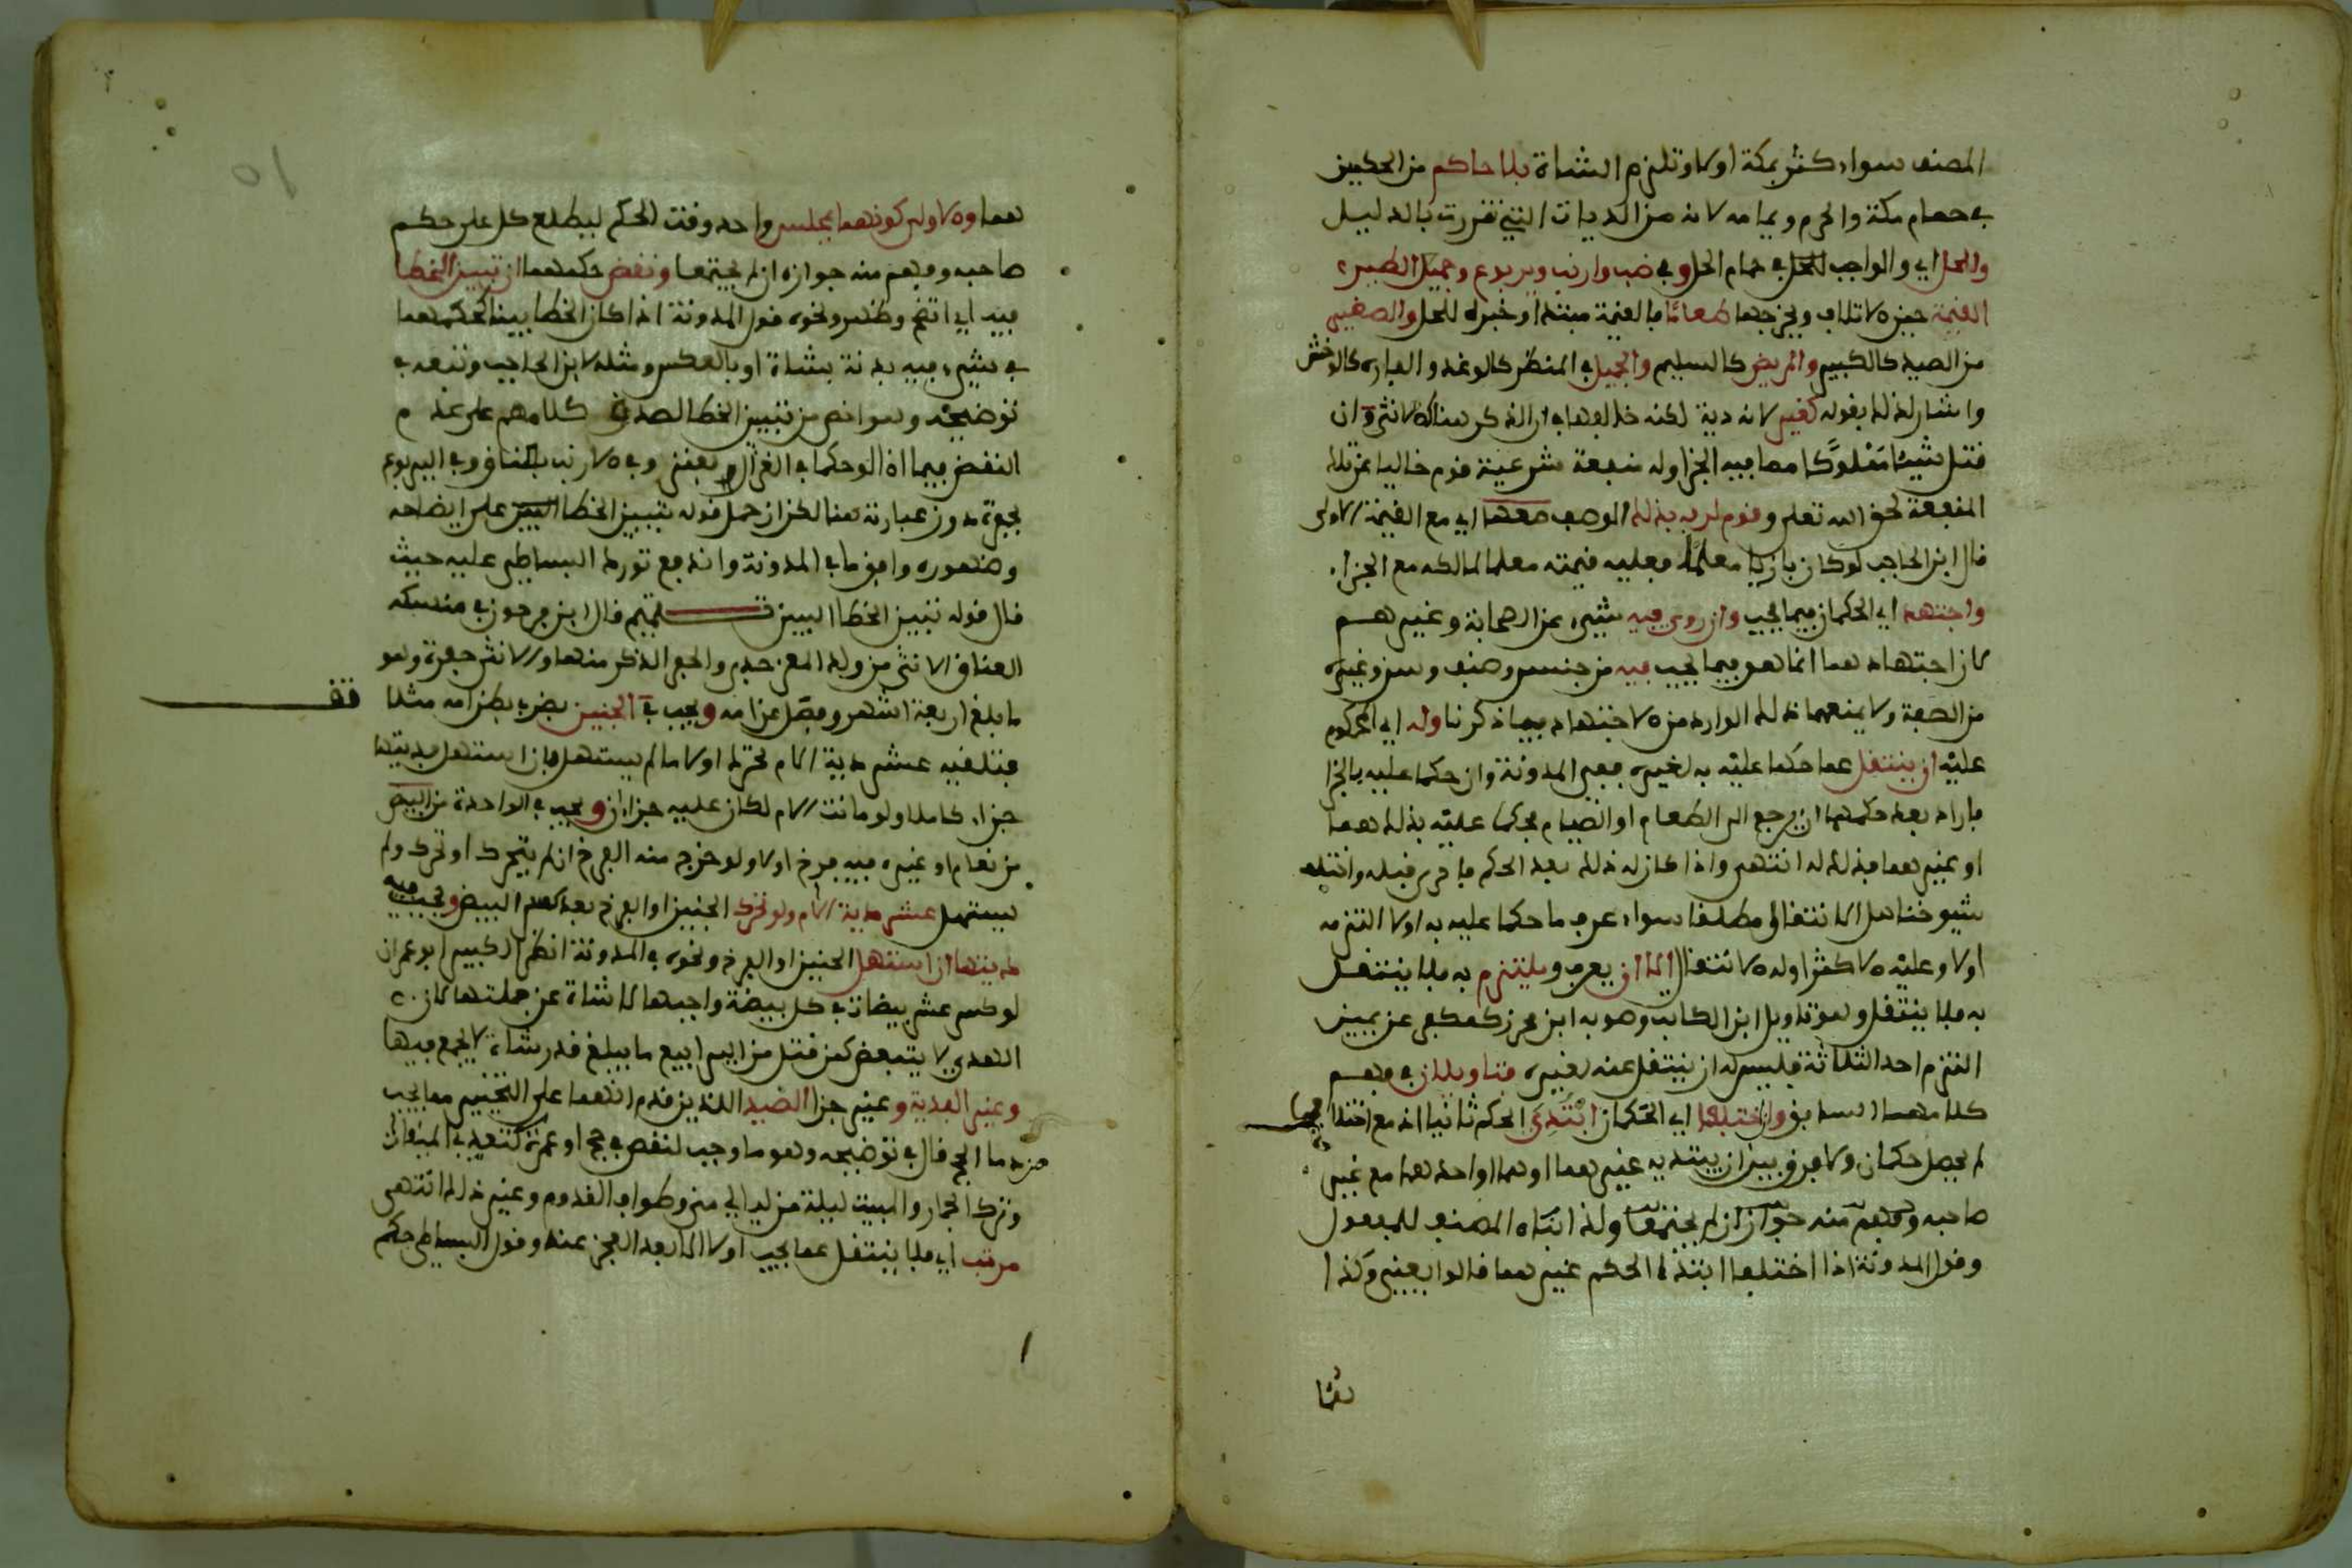 المصنف سواء كثر بمكة اولا وتلزم الشاة بلا حاكم من الحكمين
في حمام مكة والحرم ويمامه لانه من الديات التي تقررت بالدليل
والحل اي والواجب للحل في حمام الحل وفي ضب وارنب ويربوع وجميع الطير
القيمة حين الاتلاف ويخرجها طعاما فالقيمة مبتدا وخبره للحل والصغير
من الصيد كالكبير والمريض كالسليم والجميل في المنظر كالوغد والفاره كالوخش
واشار لذلك بقوله كغير لانه دية لكنه خالفها في ان الذكر هنا كالانثى وان
قتل شيئا مملوكا مما فيه الجزا وله منفعة شرعية قوم خاليا عن تلك
المنفعة لحق الله تعلى وقوم لربه بذلك الوصف معها اي مع القيمة الاولى
قال ابن الحاجب لوكان بازيا معلما فعليه قيمته معلما لمالكه مع الجزا
واجتهد اي الحكمان فيما يجب وان روي فيه شيء عن الصحابة وغيرهم
كان اجتهادهما انما هو فيما يجب فيه من جنس وصنف وسن وغيره
من الصفة ولا يمنعهما ذلك الوارد من الاجتهاد فيما ذكرنا وله اي المحكوم
عليه ان ينتقل عما حكما عليه به لغيره ففي المدونة وان حكما عليه بالجزا
فاراد بعد حكمهما ان يرجع الى الطعام او الصيام يحكما عليه بذلك هما
او غيرهما فذلك له انتهى واذا كان له ذلك بعد الحكم فاحرى قبله واختلف
شيوخنا هل الانتقال مطلقا سواء عرف ما حكما عليه به اولا التزمه
اولا وعليه الاكثر اوله الانتقال الا ان يعرف ويلتزم به فلا ينتقل
به فلا ينتقل وهو تاويل ابن الكاتب وصوبه ابن محرز كمكفر عن يمين
التزم احد الثلاثة فليس له ان ينتقل عنه لغيره فتاويلان في فهم
كلامهما السابق وان اختلفا اي الحكمان ابتدئ الحكم ثانيا اذ مع اختلافهما
لم يحصل حكمان ولا فرق بين ان يبتديه غيرهما اوهما او احدهما مع غير
صاحبه وفهم منه جواز ان لم يجتمعا ولذا ابناه المصنف للمفعول
وقول المدونة اذا اختلفا ابتدا الحكم غيرهما قالوا يعني وكذا
هما
هما والاولى كونهما بمجلس واحد وقت الحكم ليطلع كل على حكم
صاحبه وفهم منه جوازه ان لم يجتمعا ونقض حكمهما ان تبين الخطا
فيه اي اتضح وظهر ونحوه قول المدونة اذا كان الخطا بينا لحكمهما
في شيء فيه بدنة بشاة او بالعكس ومثله لابن الحاجب وتبعه في
توضيحه وهو اخص من تبيين الخطا لصدق كلامهم على عدم
النقض فيما اذا لو حكما في الغزال بعنز وفي الارنب بعناق وفي اليربوع
بجفرة دون عبارته هنا لكن ان حمل قوله تبيين الخطا على ايضاحه
وضهوره وافق ما في المدونة واندفع تورك البساطي عليه حيث
قال قوله تبين الخطا البين تتميم قال ابن فرحون في منسكه
العناق الانثى من ولد المعز جدي والجفر الذكر منها والانثى جفرة وهو
ما بلغ اربعة اشهر وفصل عن امه ويجب في الجنين يضرب بطن امه مثلا
قف
فتلقيه عشر دية الام تحرك اولا ما لم يستهل فان استهل فديتها
جزاء كاملا ولو ماتت الام لكان عليه جزاءان ويجب في الواحدة من البيض
من نعام او غيره فيه فرخ اولا ولو خرج منه الفرخ ان لم يتحرك او تحرك ولم
يستهل عشر دية الام ولو تحرك الجنين او الفرخ بعد كسر البيض ويجب فيه
ديتها ان استهل الجنين او الفرخ ونحوه في المدونة انظر الكبير ابو عمران
لو كسر عشر بيضات في كل بيضة واجبها لا شاة عن جملتها لان
الهدي لا يتبعض كمن قتل من اليرابيع ما يبلغ قدر شاة لا يجمع فيها
وغير الفدية وغير جزا الصيد اللذين قدم انهما على التخيير مما يجب
من دما الحج قال في توضيحه وهو ما وجب لنقص في حج او عمرة كتعدي الميقات
وترك الجمار والمبيت ليلة من ليالي منى وطواف القدوم وغير ذلك انتهى
مرتب اي فلا ينتقل عما يجب اولا الا بعد العجز عنه وقول البساطي حكم